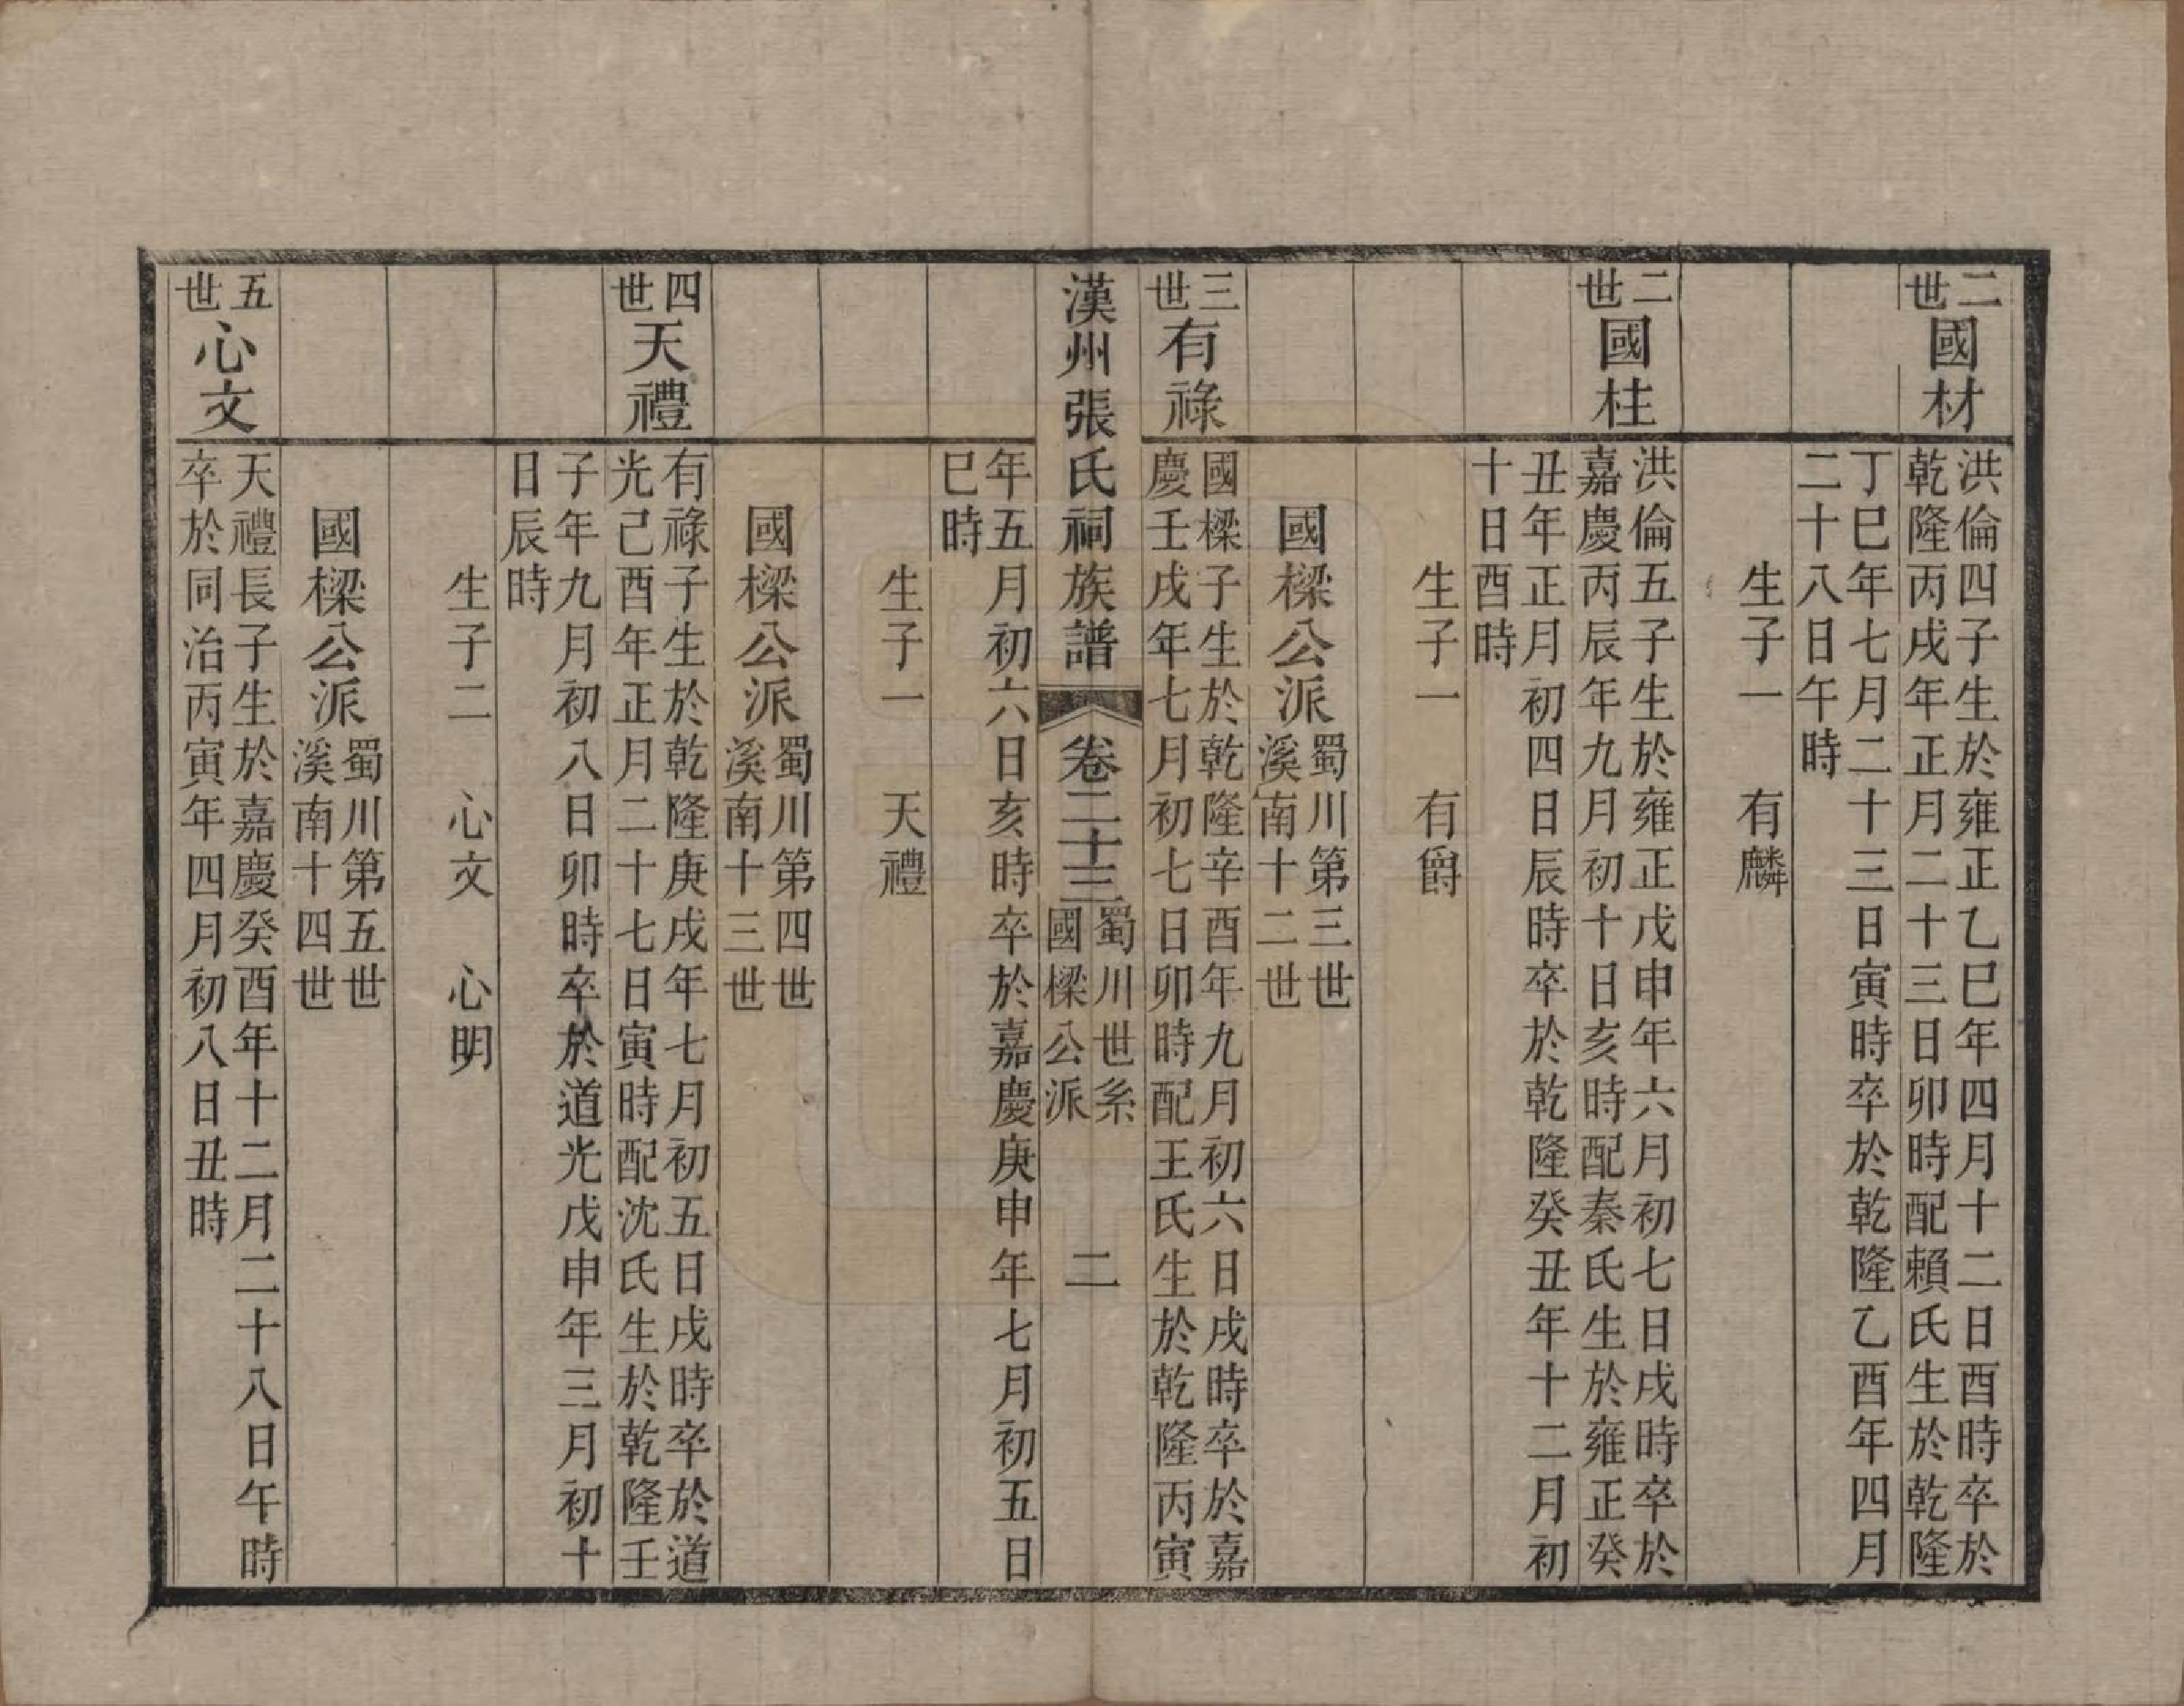 二世國材
洪倫四子生於雍正乙巳年四月十二日酉時卒於
乾隆丙戌年正月二十三日卯時配賴氏生於乾隆
丁巳年七月二十三日寅時卒於乾隆乙酉年四月
二十八日午時
生子一　有麟
二世國柱
洪倫五子生於雍正戊申年六月初七日戌時卒於
嘉慶丙辰年九月初十日亥時配秦氏生於雍正癸
丑年正月初四日辰時卒於乾隆癸丑年十二月初
十日酉時
生子一　有爵
國樑公派
蜀川第三世
溪南十二世
三世有祿
國樑子生於乾隆辛酉年九月初六日戌時卒於嘉
慶壬戌年七月初七日卯時配王氏生於乾隆丙寅
漢州張氏祠族譜　卷二十三
蜀川世系
國樑公派
二
年五月初六日亥時卒於嘉慶庚申年七月初五日
巳時
生子一　天禮
國樑公派
蜀川第四世
溪南十三世
四世天禮
有祿子生於乾隆庚戌年七月初五日戌時卒於道
光己酉年正月二十七日寅時配沈氏生於乾隆壬
子年九月初八日卯時卒於道光戊申年三月初十
日辰時
生子二　心文　心明
國樑公派
蜀川第五世
溪南十四世
五世心文
天禮長子生於嘉慶癸酉年十二月二十八日午時
卒於同治丙寅年四月初八日丑時